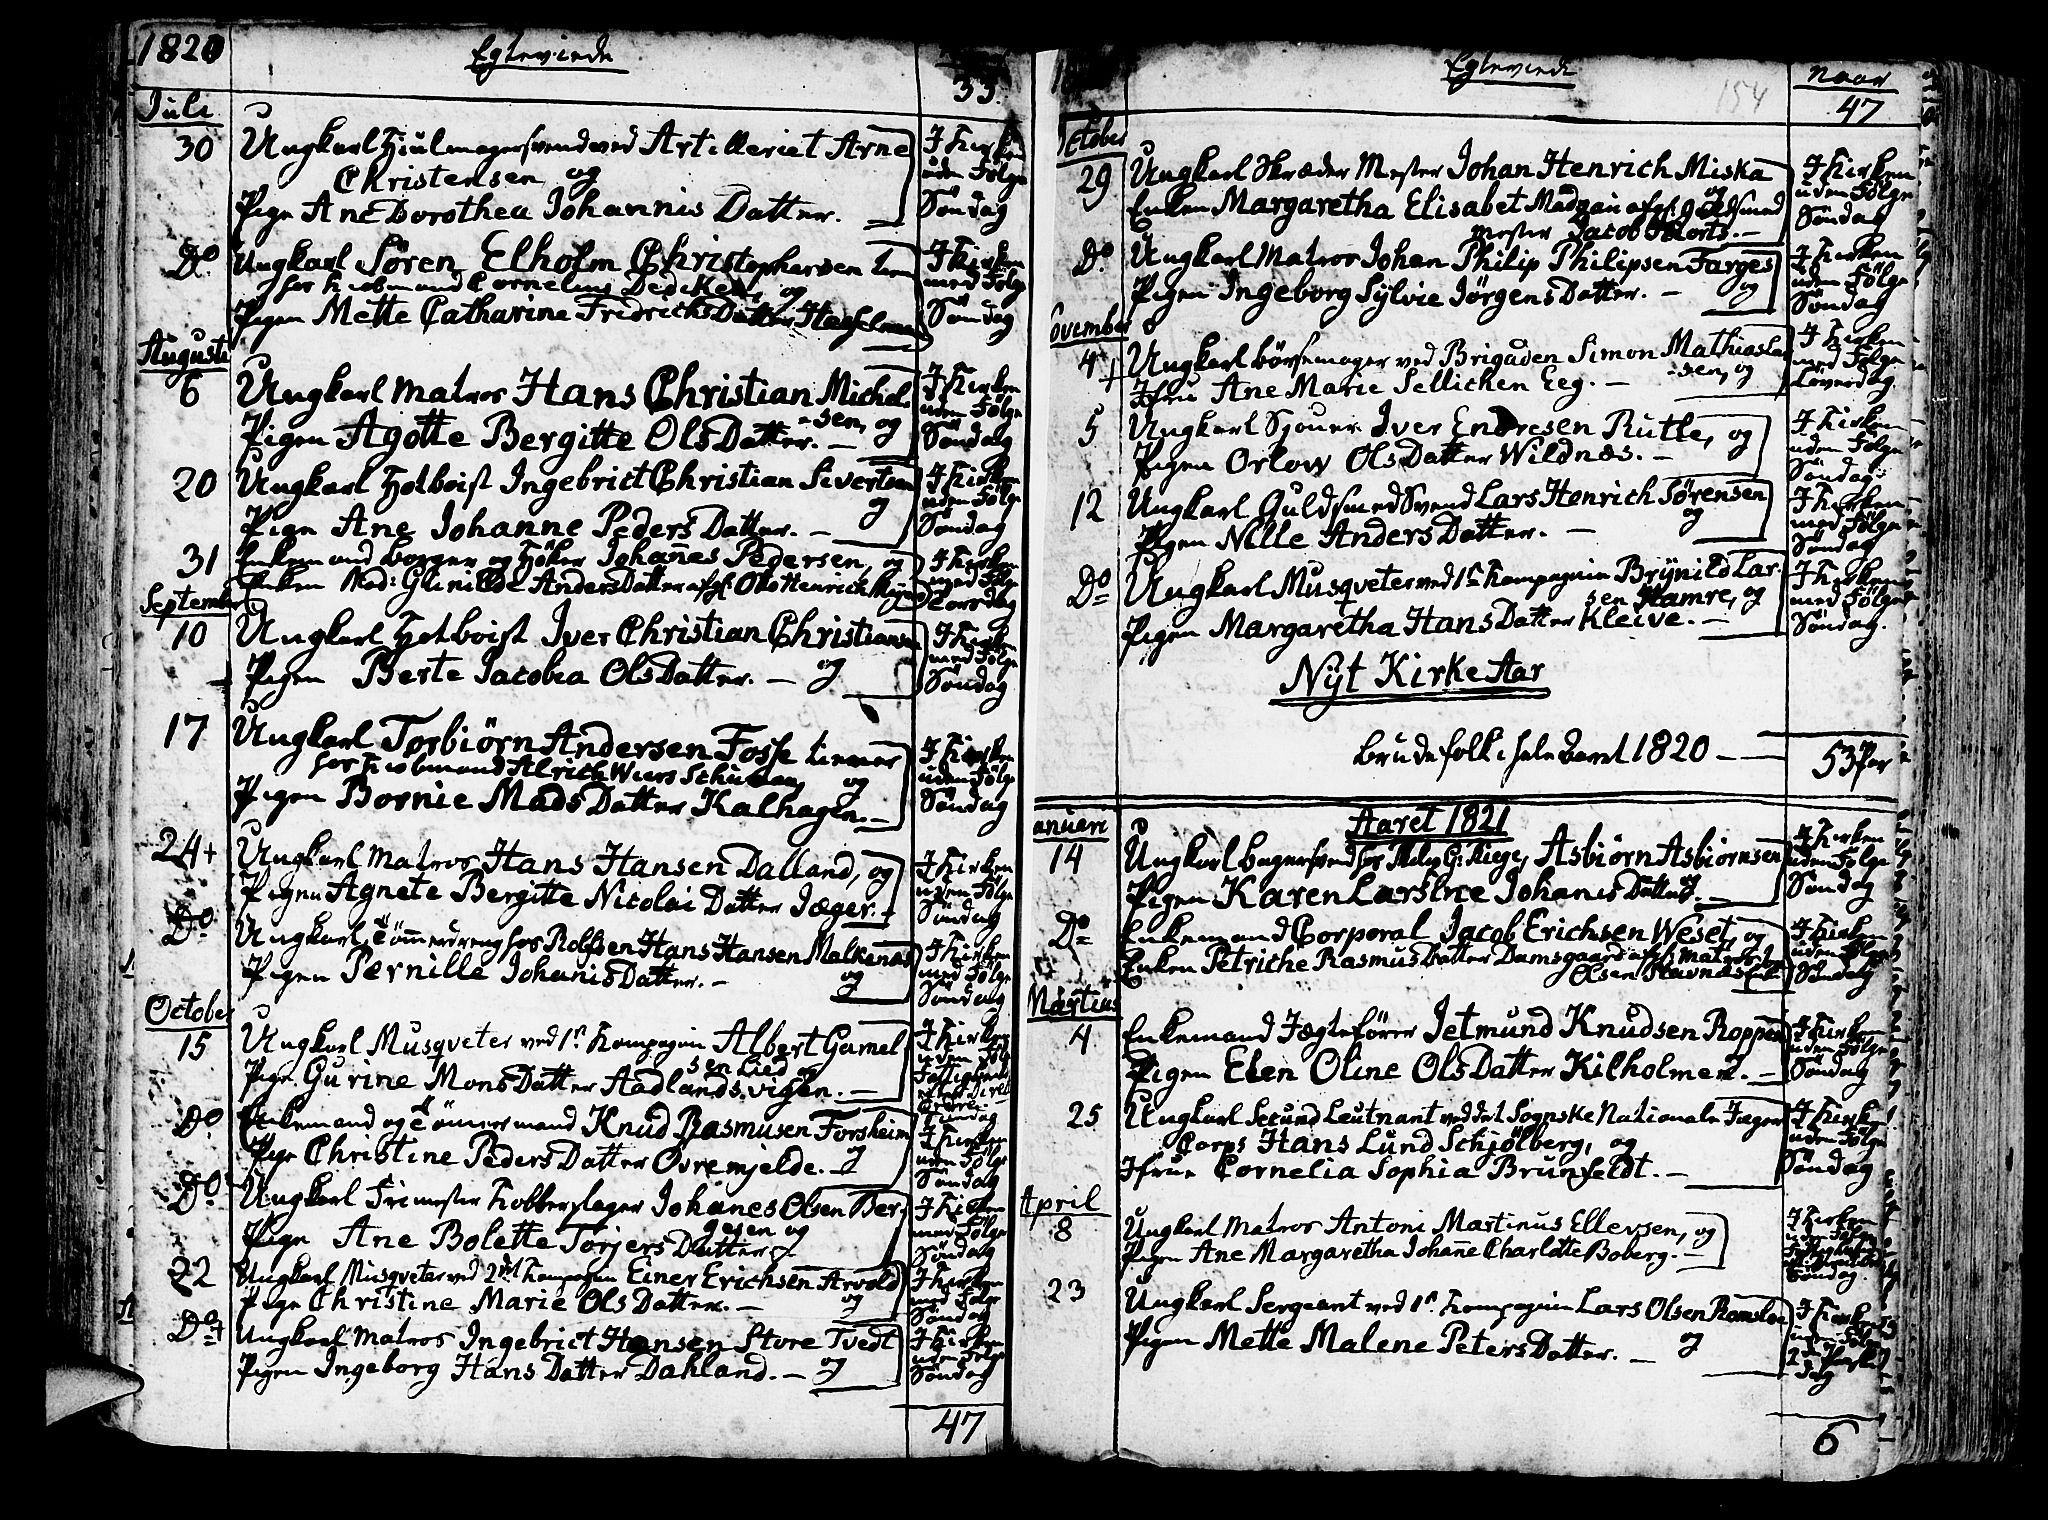 1820
Egteviede
33.
Juli
30
Ungkarl Hiulmagersvend ved Artilleriet Arne
Christensen og
Pige Ane Dorothea Johannis Datter.
I Kirken
uden Følge
Søndag
Do
Ungkarl Søren Elholm Christophersen
for Kiøbmand Cornelius Dedekel, og
Pigen Mette Catharine Fredrichs Datter
I Kirken
med Følge
Søndag
Augusti
6
Ungkarl Matros Hans Christian Michel-
-sen, og
Pigen Agotte Bergitte Ols Datter. —
I Kirken
uden Følge
Søndag
20
Ungkarl Hotboist Ingebrict Christian Sivertsen
og
Pige Ane Johanne Peders Datter. —
I Kirken
uden Følge
Søndag
31
Enkemand borger og Høker Johanes Pedersen, og
Enken Mad: Gunilde Anders Datter afgl. Ole Henrich
I Kirken
med Følge
Torsdag
September
10
Ungkarl Hotboist Iver Christian Christiansen
og
Pigen Berte Jacobia Ols Datter. —
I Kirken
med Følge
Søndag
17
Ungkarl Torbiørn Andersen Fosse tiener
for Kiøbmand Alrich Wiers Schuman, og
Pigen Bornie Mads Datter Kalhagen. —
I Kirken
uden Følge
Søndag
24+
Ungkarl Matros Hans Hansen Dalland, og
Pigen Agnete Bergitte Nicolai Datter Jæger. —
I Kirken
uden Følge
Søndag
Do
Ungkarl Tømmerdreng hos Rolfsen Hans Hansen Malkenæs
og
Pigen Pernille Johanis Datter. —
I Kirken
med Følge
Søndag
October
15
Ungkarl Musqveter ved 1st Kompagnie Albert Gamel
sen Lied og
Pige Gurine Mons Datter Aadlandsvigen. —
I Kirken
uden Følge
Søndag
Do
Enkemand og Tømermand Knud Rasmusen Forsheim
og
Pige Christine Peders Datter Øvremjelde. —
I Kirken
uden Følge
Søndag
Do
Ungkarl Frimester Kobberslager Johanes Olsen Ber-
gesen og
Pige Ane Bolette Torjers Datter
I Kirken
med Følge
Søndag
22
Ungkarl Musqveter ved 2det Kompagnie Einer Erichsen Arvold
og
Pige Christine Marie Ols Datter. —
I Kirken
med Følge
Søndag
Do+
Ungkarl Matros Ingebrict Hansen Store Tvedt
og
Pigen Ingeborg Hans Datter Dahland. —
I Kirken
uden Følge
Søndag
47
Egteviede
154
naar
47
October
29
Ungkarl Skræder Mester Johan Henrich Miska
og
Enken Margaretha Elisabet Madzau afgl. guldsmed
mester Jacob —
I Kirken
uden Følge
Søndag
Do
Ungkarl Matros Johan Philip Philipsen Farges
og
Pigen Ingeborg Sylvie Jørgens Datter. —
I Kirken
uden Følge
Søndag
November
4
+
Ungkarl børsemager ved Brigaden Simon Mathias
-sen, og
Jfru Ane Marie Sellichen Eeg. —
I Kirken
med Følge
Løverdag
5
Ungkarl Sjouer Iver Endresen Rutle, og
Pigen Orlow Ols Datter Wildnæs. —
I Kirken
uden Følge
Søndag
12
Ungkarl GuldsmedSvend Lars Henrich Sørensen
og
Pigen Nille Anders Datter. —
I Kirken
med Følge
Søndag
Do
Ungkarl Musqveter ved 1st Kompagnie Brÿnild Lar-
sen Hamre, og
Pigen Margaretha Hans Datter Kleive. —
I Kirken
med Følge
Søndag.
Nÿt Kirke Aar
Brudefolk i hele Aaret 1820 — —
53 Par
Aaret 1821
Januari
14
Ungkarl bagersvend hos G: Riege, Asbiørn Asbiørnsen
og
Pigen Karen Larsine Johanis Datter. —
I Kirken
uden Følge
Søndag
Do
Enkemand Corporal Jacob Erichsen Weset, og
Enken Petriche Rasmus Datter Damsgaard afgl. Matros
Olsen
I Kirken
uden Følge
Søndag
Martius
4
Enkemand Jægtefører Jetmund Knudsen Roppen
og
Pigen Elen Oline Ols Datter Kilholmen. —
I Kirken
uden Følge
Søndag
25
Ungkarl Secund Leutnant ved det Sognske Nationale Jæger
Corps Hans Lund Schjølberg, og
Jfrue Cornelia Sophia Brunfeldt. —
I Kirken
uden Følge
Søndag
April
8
Ungkarl Matros Antoni Martinus Ellevsen, og
Pigen Ane Margaretha Johane Charlotte Boberg. —
I Kirken
uden Følge
Søndag
23
Ungkarl Sergeant ved 1st Kompagnie Lars Olsen Ramsløe
og
Pigen Mette Malene Peters Datter. —
I Kirken
uden Følge
2den Paaske
dag
6